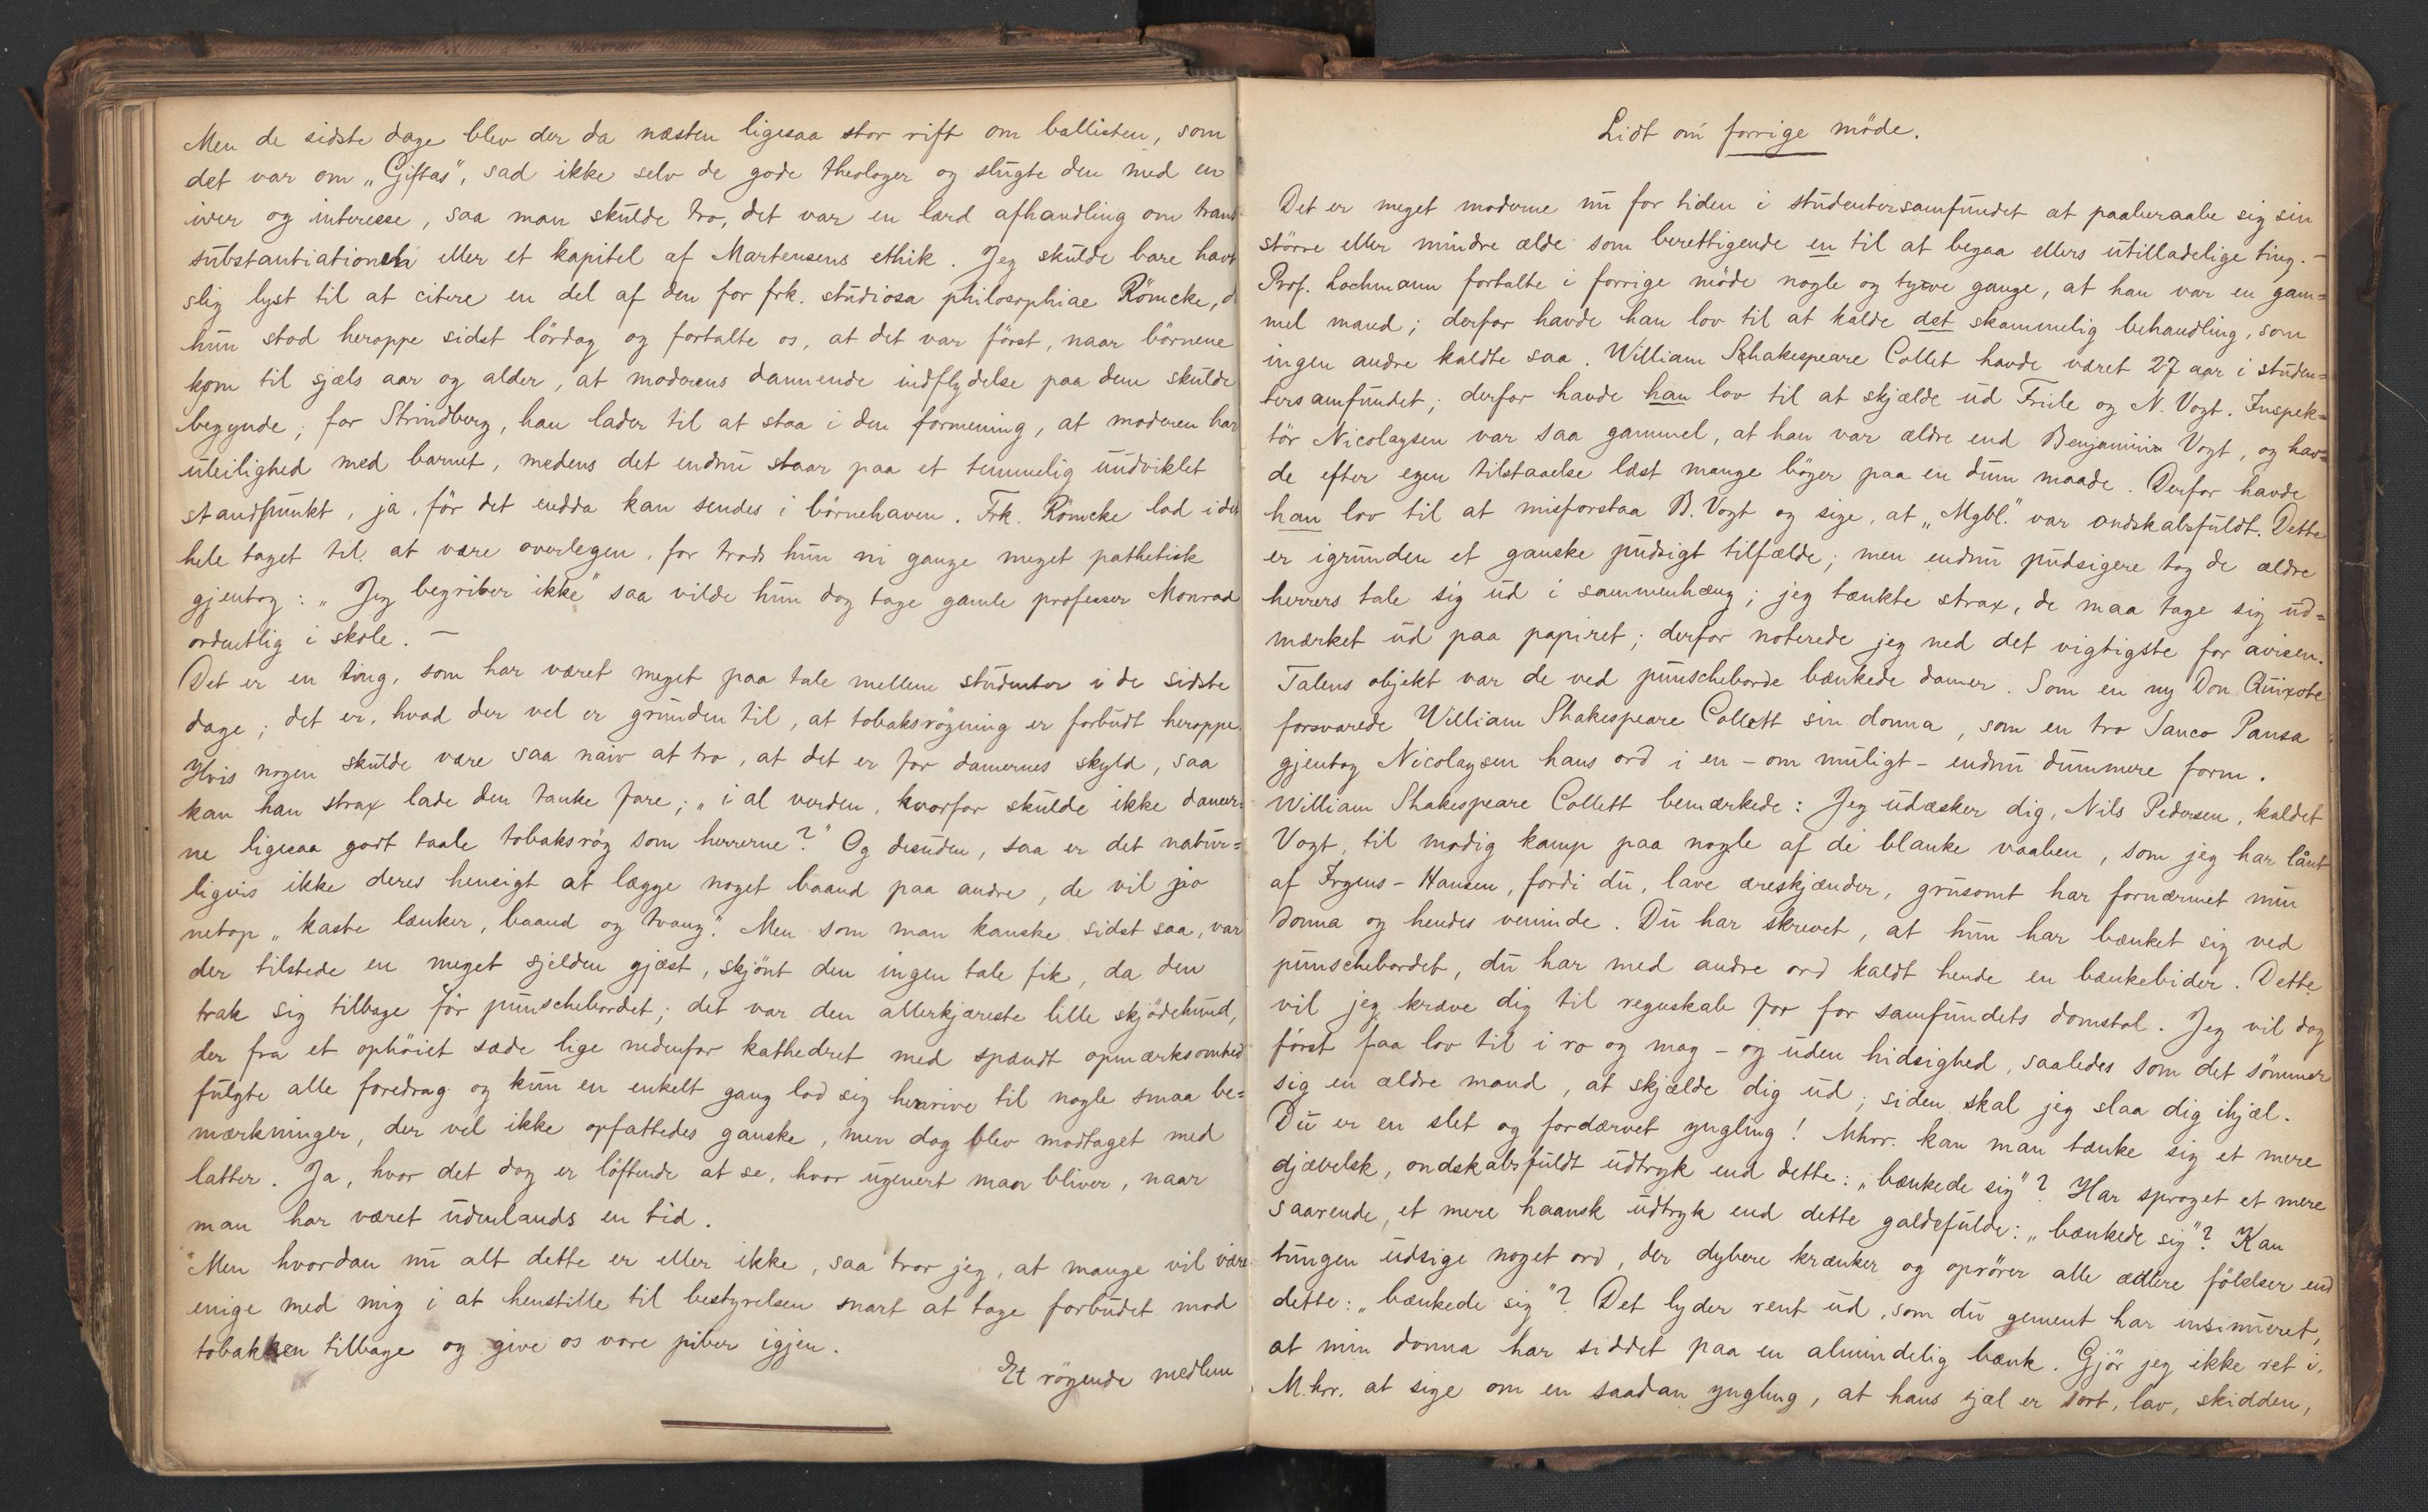 Men de sidste dage blev der da næsten ligesaa stor rift om ballisten, som
det var om „Giftas“, sad ikke selv de gode theologer og slugte den med en
iver og interesse, saa man skulde tro, det var en lærd afhandling om trans-
substantiationen eller et kapitel af Martensens ethik. Jeg skulde bare havt
slig lyst til at citere en del af den for frk. studiosa philosophiae Römcke, d
hun stod heroppe sidst lördag og fortalte os, at det var först, naar börnene
kom til sjæls aar og alder, at moderens dannende indflydelse paa dem skulde
begynde, for Strindberg, han lader til at staa i den formening, at moderen har
uleilighed med barnet, medens det endnu staar paa et temmelig uudviklet
standpunkt, ja, för det endda kan sendes i börnehaven. Frk. Römcke lod i det
hele taget til at være overlegen, for trods hun ni gange meget pathetisk
gjentog: „Jeg begriber ikke“ saa vilde hun dog tage gamle professer Monrad
ordentlig i skole. —
Det er en ting, som har været meget paa tale mellem studenter i de sidste
dage; det er, hvad der vel er grunden til, at tobaksrögning er forbudt heroppe.
Hvis nogen skulde være saa naiv at tro, at det er for damernes skyld, saa
kan han strax lade den tanke fare; „i al verden, hvorfor skulde ikke damer-
ne ligesaa godt taale tobaksrög som herrerne?“ Og desuden, saa er det natur=
ligvis ikke deres hensigt at lægge noget baand paa andre, de vil jo
netop „kaste lænker, baand og tvang“. Men som man kanske sidst saa, var
der tilstede en meget sjelden gjæst, skjönt den ingen tale fik, da den
trak sig tilbage för punschebordet; det var den allerkjæreste lille skjödehund,
der fra et ophöiet sæde lige nedenfor kathedret med spændt opmærksomhed
fulgte alle foredrag og kun en enkelt gang lod sig henrive til nogle smaa be=
mærkninger, der vel ikke opfattedes ganske, men dog blev modtaget med
latter. Ja, hvor det dog er löftende at se, hvor ugenert man bliver, naar
man har været udenlands en tid.
Men hvordan nu alt dette er eller ikke, saa tror jeg, at mange vil være
enige med mig i at henstille til bestyrelsen snart at tage forbudet mod
tobakken tilbage og give os vore piber igjen.
Et rögende medlem
Lidt om forrige möde.
Det er meget moderne nu for tiden i studentersamfundet at paaberaabe sig sin
större eller mindre ælde som berettigende en til at begaa ellers utilladelige ting. —
Prof. Lochmann fortalte i forrige möde nogle og tyve gange, at han var en gam=
mel mand; derfor havde han lov til at kalde det skammelig behandling, som
ingen andre kaldte saa. William Shakespeare Collet havde været 27 aar i studen=
tersamfundet; derfor havde han lov til at skjælde ud Friele og N. Vogt. Inspek=
tör Nicolaysen var saa gammel, at han var ældre end Benjamin Vogt, og hav=
de efter egen tilstaaelse læst mange böger paa en dum maade. Derfor havde
han lov til at misforstaa B. Vogt og sige, at „Mgbl.“ var ondskabsfuldt. Dette
er igrunden et ganske pudsigt tilfælde; men endnu pudsigere tog de ældre
herrers tale sig ud i sammenhæng; jeg tænkte strax, de maa tage sig ud=
mærket ud paa papiret; derfor noterede jeg ned det vigtigste for avisen.
Talens objekt var de ved punscheborde bænkede damer. Som en ny Don Quixote
forsvarede William Shakespeare Collett sin donna, som en tro Sanco Pansa
gjentog Nicolaysen hans ord i en – om muligt – endnu dummere form.
William Shakespeare Collett bemærkede: Jeg udæsker dig, Nils Pedersen, kaldet
Vogt, til modig kamp paa nogle af de blanke vaaben, som jeg har lånt
af Irgens-Hansen, fordi du, lave æreskjænder, grusomt har fornærmet min
donna og hendes veninde. Du har skrevet, at hun har bænket sig ved
punschebordet, du har med andre ord kaldt hende en bænkebider. Dette
vil jeg kræve dig til regnskab for for samfundets domstol. Jeg vil dog
först faa lov til i ro og mag – og uden hidsighed, saaledes som det sömmer
sig en ældre mand, at skjælde dig ud; siden skal jeg slaa dig ihjæl.
Du er en slet og fordærvet yngling! Mhrr. kan man tænke sig et mere
djævelsk, ondskabsfuldt udtryk end dette: „bænkede sig“? Har sproget et mere
saarende, et mere haansk udtryk end dette galdefulde: „bænkede sig“? Kan
tungen udsige noget ord, der dybere krænker og oprörer alle ædlere fölelser end
dette: „bænkede sig“? Det lyder rent ud, som du gement har insinueret,
at min donna har siddet paa en almindelig bænk. Gjör jeg ikke ret i,
M.hrr. at sige om en saadan yngling, at hans sjæl er sort, lav, skidden,